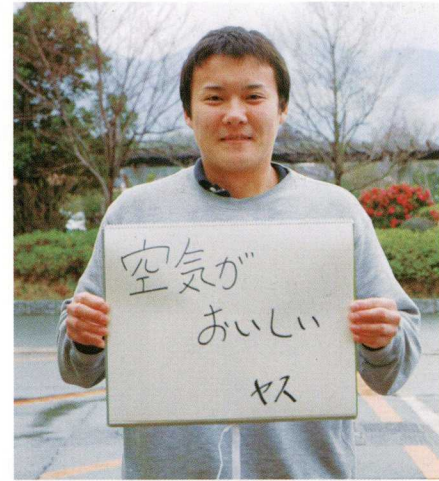 空気が
おいしい
ヤス